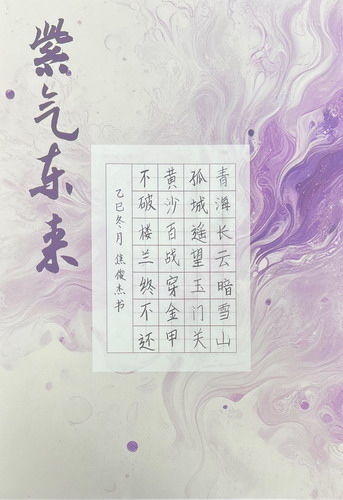 紫气东来
青海长云暗雪山
孤城遥望玉门关
黄沙百战穿金甲
不破楼兰终不还
乙巳冬月 焦俊杰书